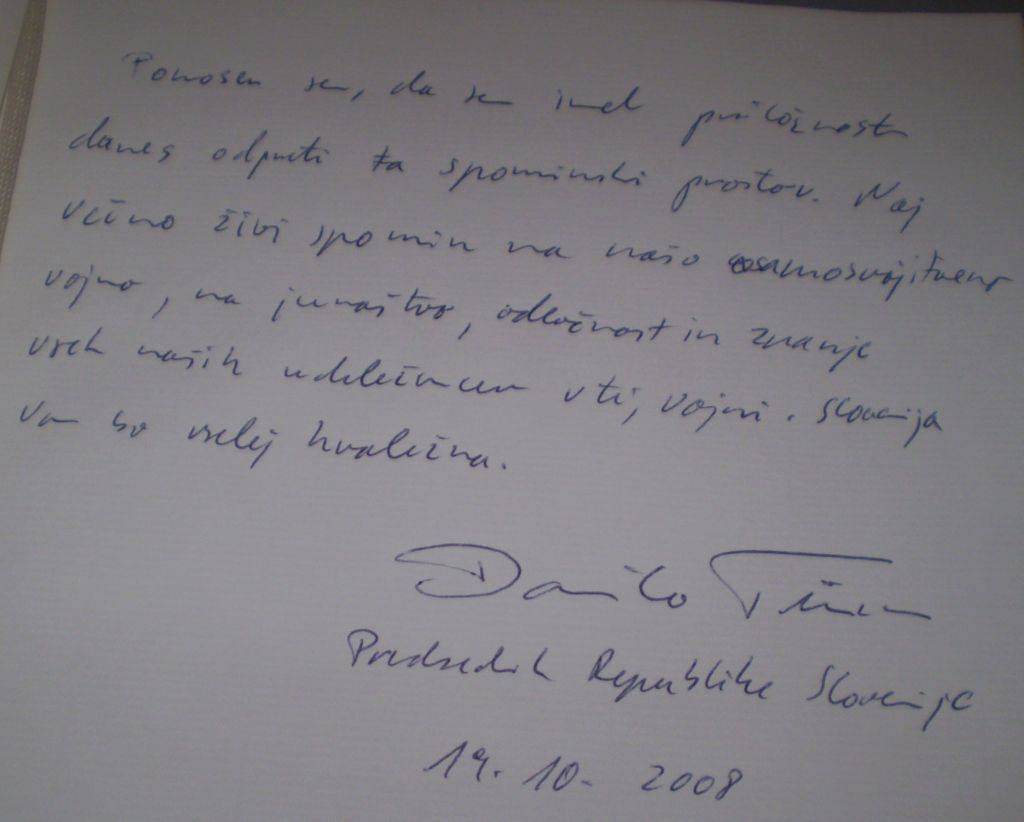 Ponosen sem, da sem imel priložnost
danes odpreti ta spominski prostor. Naj
večno živi spomin na našo osamosvojitveno
vojno, na junaštvo, odločnost in znanje
vseh naših udeležencev v tej vojni. Slovenija
vam bo vselej hvaležna.
Danilo Türk
Predsednik Republike Slovenije
19. 10. 2008